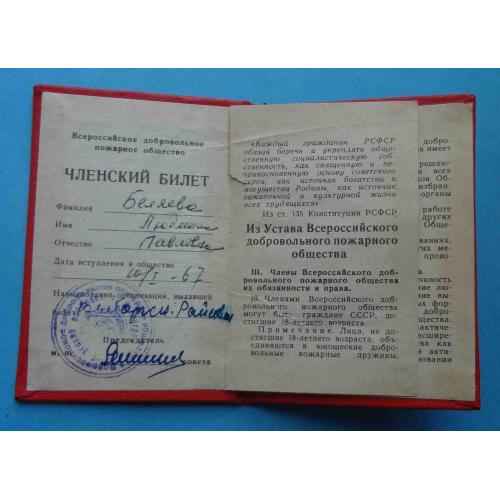 Всероссийское добровольное
пожарное общество
ЧЛЕНСКИЙ БИЛЕТ
Фамилия Беляева
Имя Людмила
Отчество Павловна
Дата вступления в общество
10/I-67
Наименование организации, выдавшей
Выборгск.
Председатель
М. П. совета
«Каждый гражданин РСФСР
обязан беречь и укреплять обще-
ственную социалистическую соб-
ственность, как священную и не-
прикосновенную основу советского
строя, как источник богатства и
могущества Родины, как источник
зажиточной и культурной жизни
всех трудящихся».
Из ст. 135 Конституции РСФСР
Из Устава Всероссийского
добровольного пожарного
общества
III. Члены Всероссийского доб-
ровольного пожарного общества
их обязанности и права.
10. Членами Всероссийского доб-
ровольного пожарного общества
могут быть граждане СССР, до-
стигшие 18-летнего возраста.
Примечание. Лица, не до-
стигшие 18-летнего возраста,
объединяются в юношеские добро-
вольные пожарные дружины.